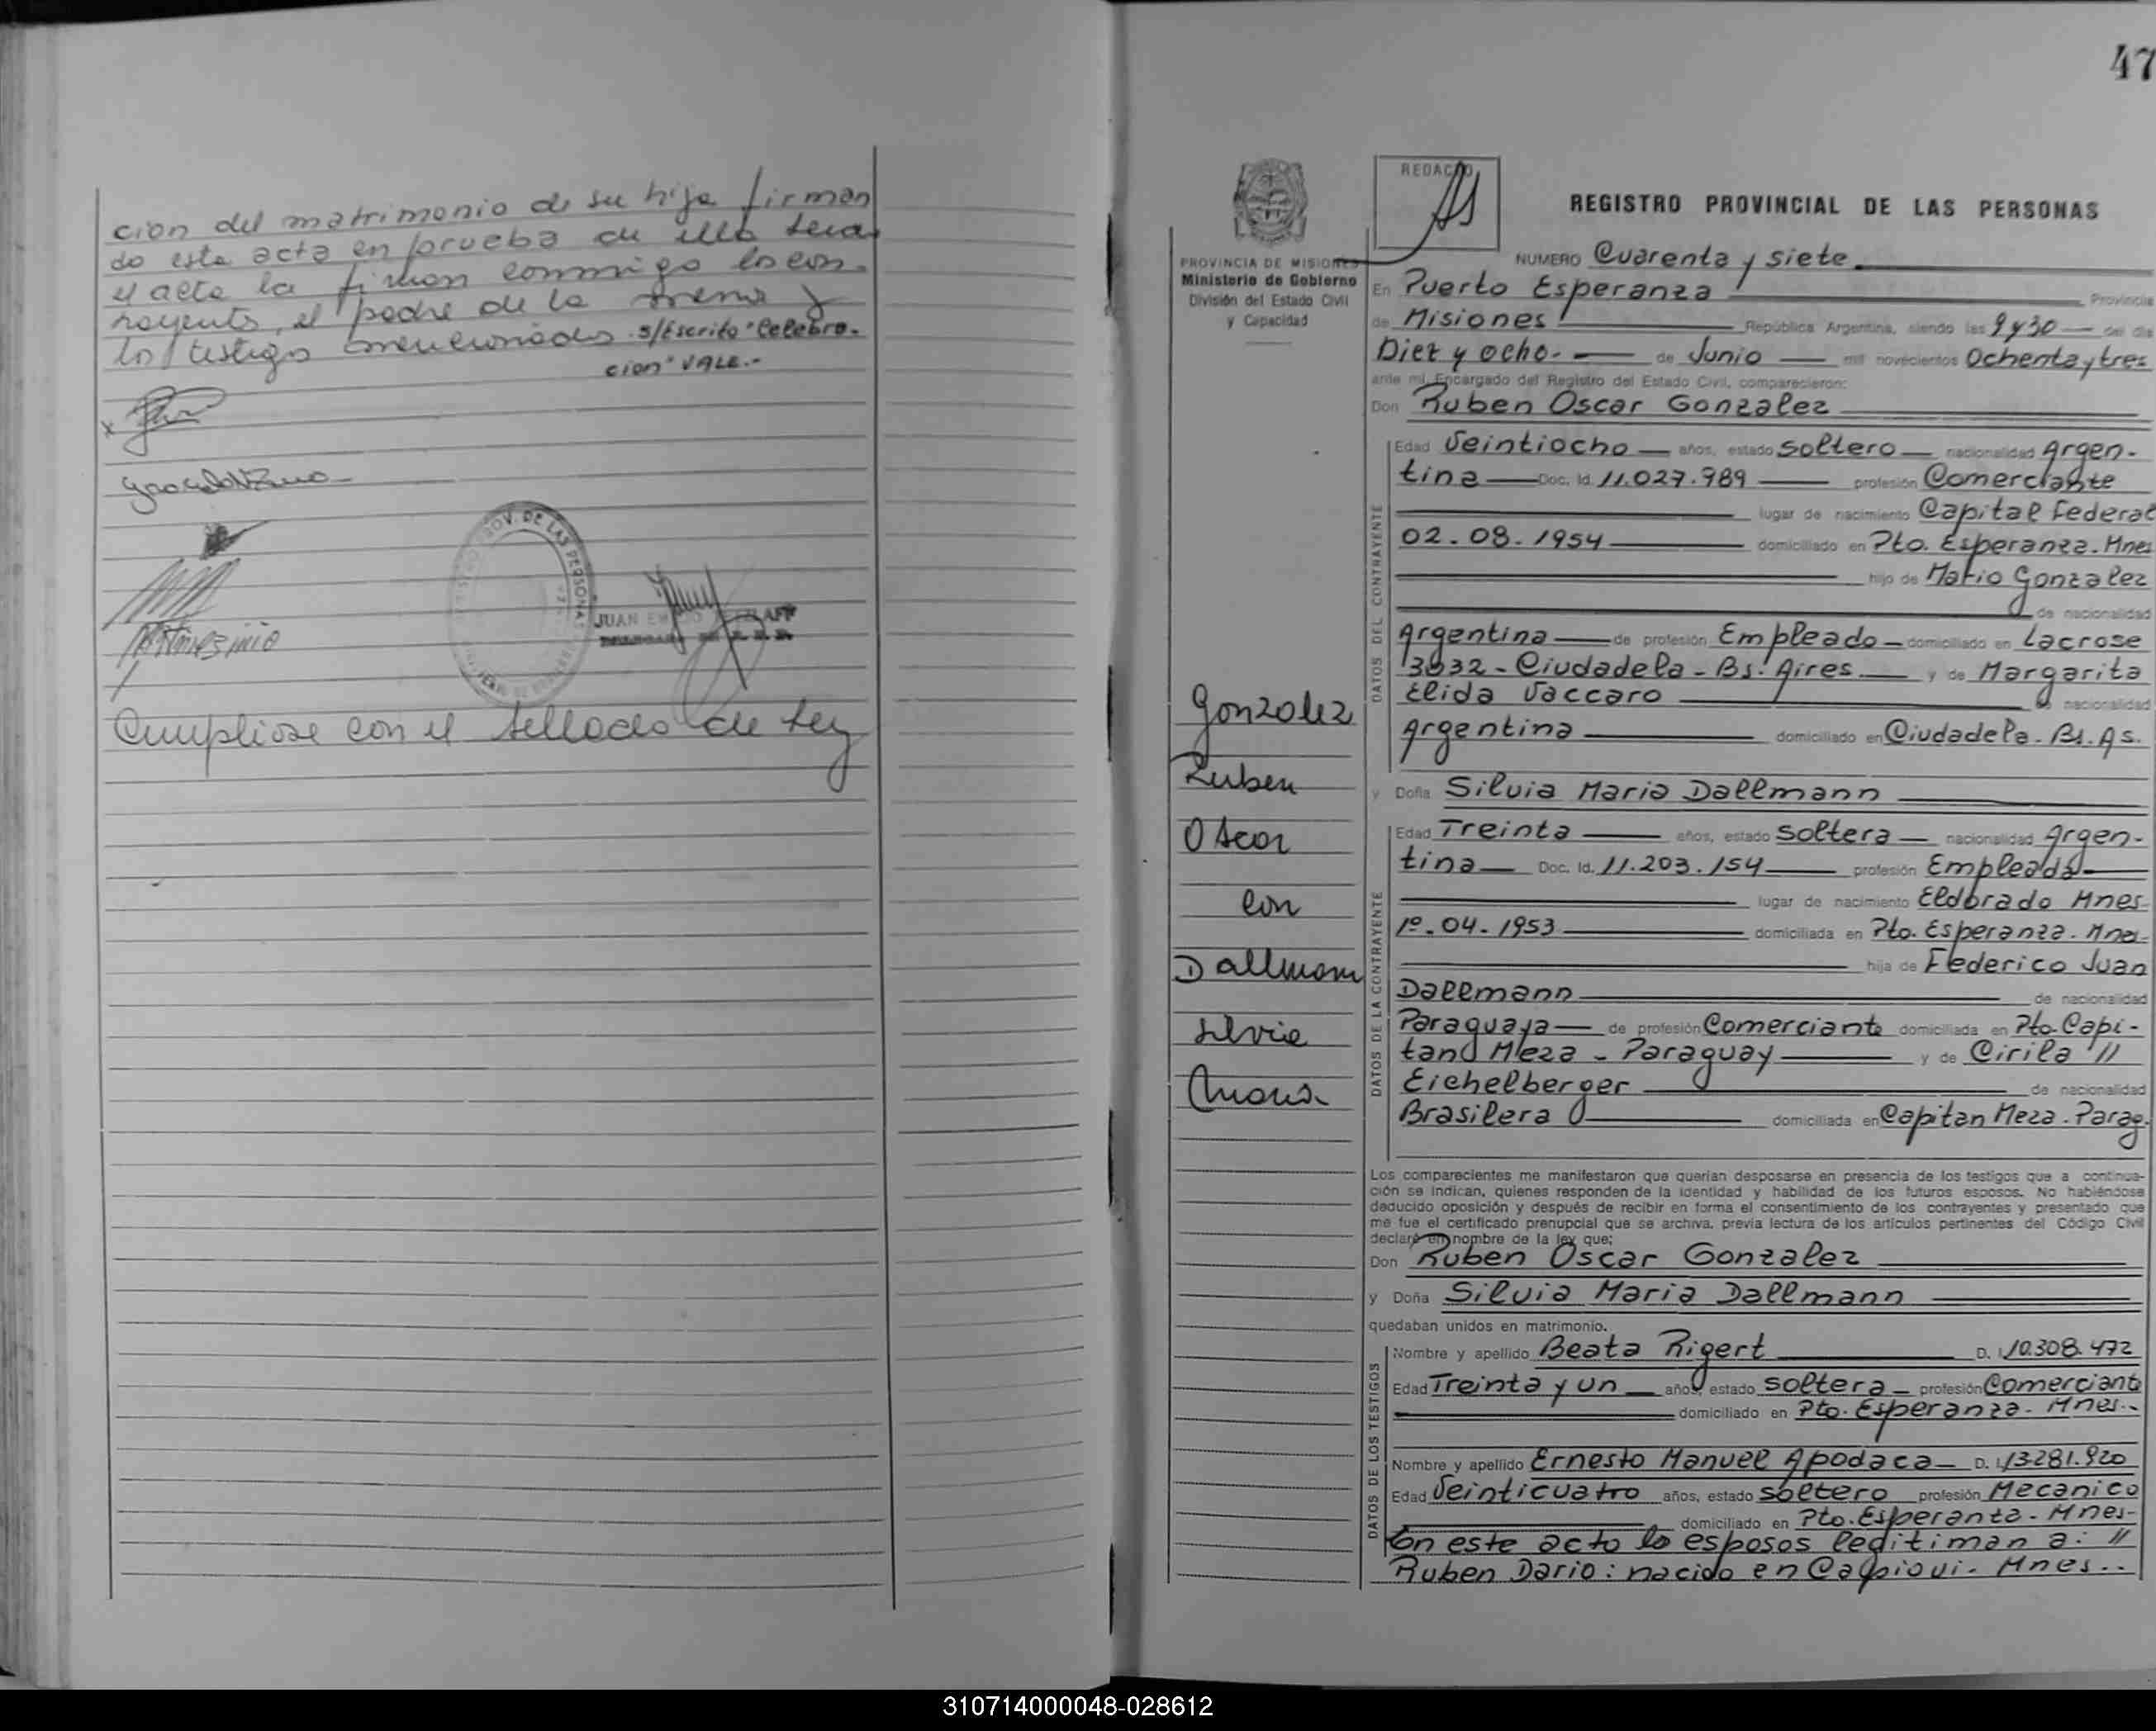 cion del matrimonio de su hija firman
do esta acta en prueba de ello leida
el acta la firman conmigo los con-
trayentes, el padre de la
los testigos mencionados. s/Escrito "Celebra-
cion" VALE.-
PROV. DE LAS PERSONAS
JUAN
Cumpliose con el sellado de Ley
47
REDAC
PROVINCIA DE MISIONES
Ministerio de Gobierno
División del Estado Civil
y Capacidad
Gonzalez
Ruben
Oscar
con
Dallmann
Silvia
Maria
REGISTRO PROVINCIAL DE LAS PERSONAS
NUMERO Cuarenta y siete
En Puerto Esperanza Provincia
de Misiones República Argentina, siendo las 9 y 30 del día
Diez y ocho.- de Junio mil novecientos Ochenta y tres
ante mí, Encargado del Registro del Estado Civil, comparecieron:
Don Ruben Oscar Gonzalez
DATOS DEL CONTRAYENTE
Edad Veintiocho años, estado Soltero nacionalidad Argen-
tina Doc. Id. 11.027.989 profesión Comerciante
lugar de nacimiento Capital Federal
02.08.1954 domiciliado en Pto. Esperanza. Mnes
hijo de Mario Gonzalez
de nacionalidad
Argentina de profesión Empleado domiciliado en Lacrose
3032 - Ciudadela - Bs. Aires. y de Margarita
Elida Vaccaro nacionalidad
Argentina domiciliado en Ciudadela. Bs. As.
y Doña Silvia Maria Dallmann
DATOS DE LA CONTRAYENTE
Edad Treinta años, estado Soltera nacionalidad Argen-
tina Doc. Id. 11.203.154 profesión Empleada
lugar de nacimiento Eldorado Mnes
1º.04.1953 domiciliada en Pto. Esperanza. Mnes-
hija de Federico Juan
Dallmann de nacionalidad
Paraguaya de profesión Comerciante domiciliada en Pto. Capi-
tan Meza - Paraguay y de Cirila //
Eichelberger de nacionalidad
Brasilera domiciliada en Capitan Meza. Parag.
Los comparecientes me manifestaron que querían desposarse en presencia de los testigos que a continua-
ción se indican, quienes responden de la identidad y habilidad de los futuros esposos. No habiéndose
deducido oposición y después de recibir en forma el consentimiento de los contrayentes y presentado que
me fue el certificado prenupcial que se archiva, previa lectura de los artículos pertinentes del Código Civil
declaré en nombre de la ley que;
Don Ruben Oscar Gonzalez
y Doña Silvia Maria Dallmann
quedaban unidos en matrimonio.
DATOS DE LOS TESTIGOS
Nombre y apellido Beata Rigert D. I. 10.308.472
Edad Treinta y un años, estado soltera profesión Comerciante
domiciliado en Pto. Esperanza. Mnes.-
Nombre y apellido Ernesto Manuel Apodaca D. I. 13.281.920
Edad Veinticuatro años, estado soltero profesión Mecanico
domiciliado en Pto. Esperanza. Mnes-
En este acto lo esposos legitiman a: //
Ruben Dario: nacido en Mnes..
310714000048-028612